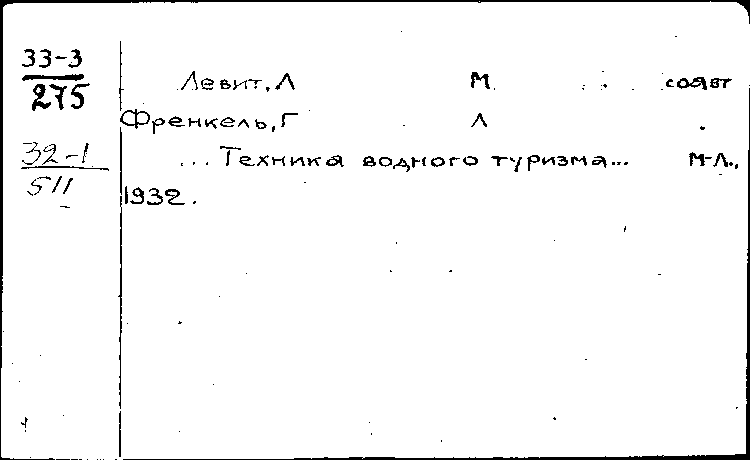 33-3
275
Левит, Л М. соавт
Френкель, Г Л
32-1
511
... Техника водного туризма... М-Л.,
1932.